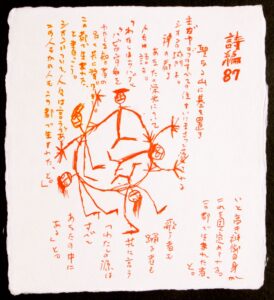 詩編
87
聖なる山に基を置き
主がヤコブのすべての住まいにまさって愛される
シオンの城門よ。
神の都よ
あなたの栄光について
人々は語る。
「わたしはラハブと
バビロンの名を
わたしを知る者の
名と共に挙げよう
この都で生まれた、
と書こう。
シオンについて、人々は言うであろう
この人もかの人もこの都で生まれた、と。
いと高き神御自身が
これを固く定められる。
この都で生まれた者、
と。
歌う者も
踊る者も
共に言う
「わたしの源は
すべて
あなたの中に
ある」と。